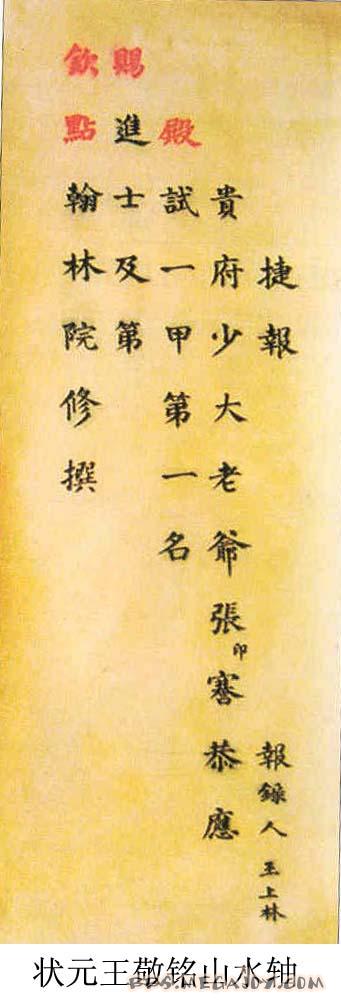 捷報
報錄人 王上林
貴府少大老爺張印謇恭應
殿試一甲第一名
賜進士及第
欽點翰林院修撰
状元王敬铭山水轴
BBS.MEGAJOY.COM